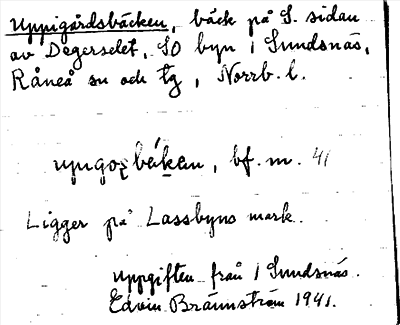 Uppigårdsbäcken, bäck på S. sidan
av Degerselet, SO byn i Sundsnäs,
Råneå sn och tg, Norrb. l.
bf. m. 41
Ligger på Lassbyns mark.
Uppgiften från i Sundsnäs.
Edvin Brännström 1941.